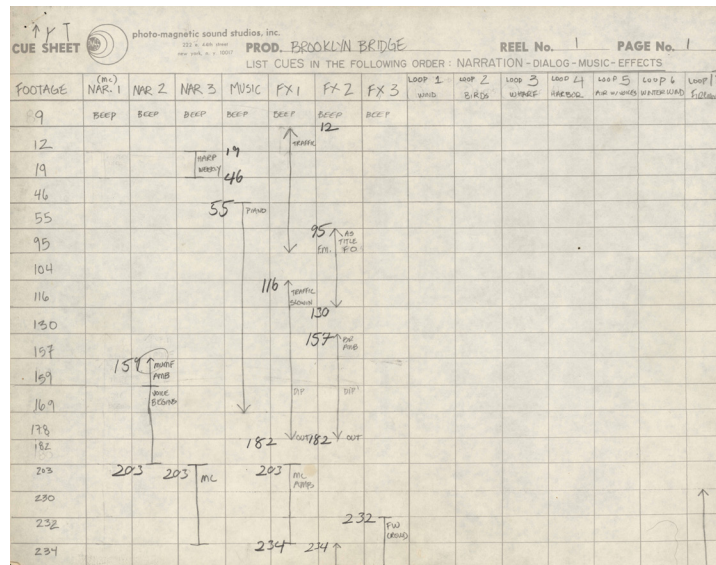 photo-magnetic sound studios, inc.
222 e. 44th street
new york, n. y. 10017
CUE SHEET
PROD. BROOKLYN BRIDGE
REEL No. 1
PAGE No. 1
LIST CUES IN THE FOLLOWING ORDER: NARRATION - DIALOG - MUSIC - EFFECTS
FOOTAGE (MC) NAR. 1 NAR 2 NAR 3 MUSIC FX 1 FX 2 FX 3 LOOP 1 WIND LOOP 2 BIRDS LOOP 3 WHARF LOOP 4 HARBOR LOOP 5 LOOP 6 LOOP
9 BEEP BEEP BEEP BEEP BEEP BEEP BEEP
12
12 TRAFFIC
19
HARP WEEKLY
19 46
46
55 55 PIANO
95 95 AS TITLE FO
104
116 116 TRAFFIC
130 130
157 157
159 159 AMB
VOICE BEGINS
169 DIP DIP
178
182 182 OUT 182 OUT
203 203 203 MC 203 MC AMPS
230
232 232 FW CROWD
234 234 234